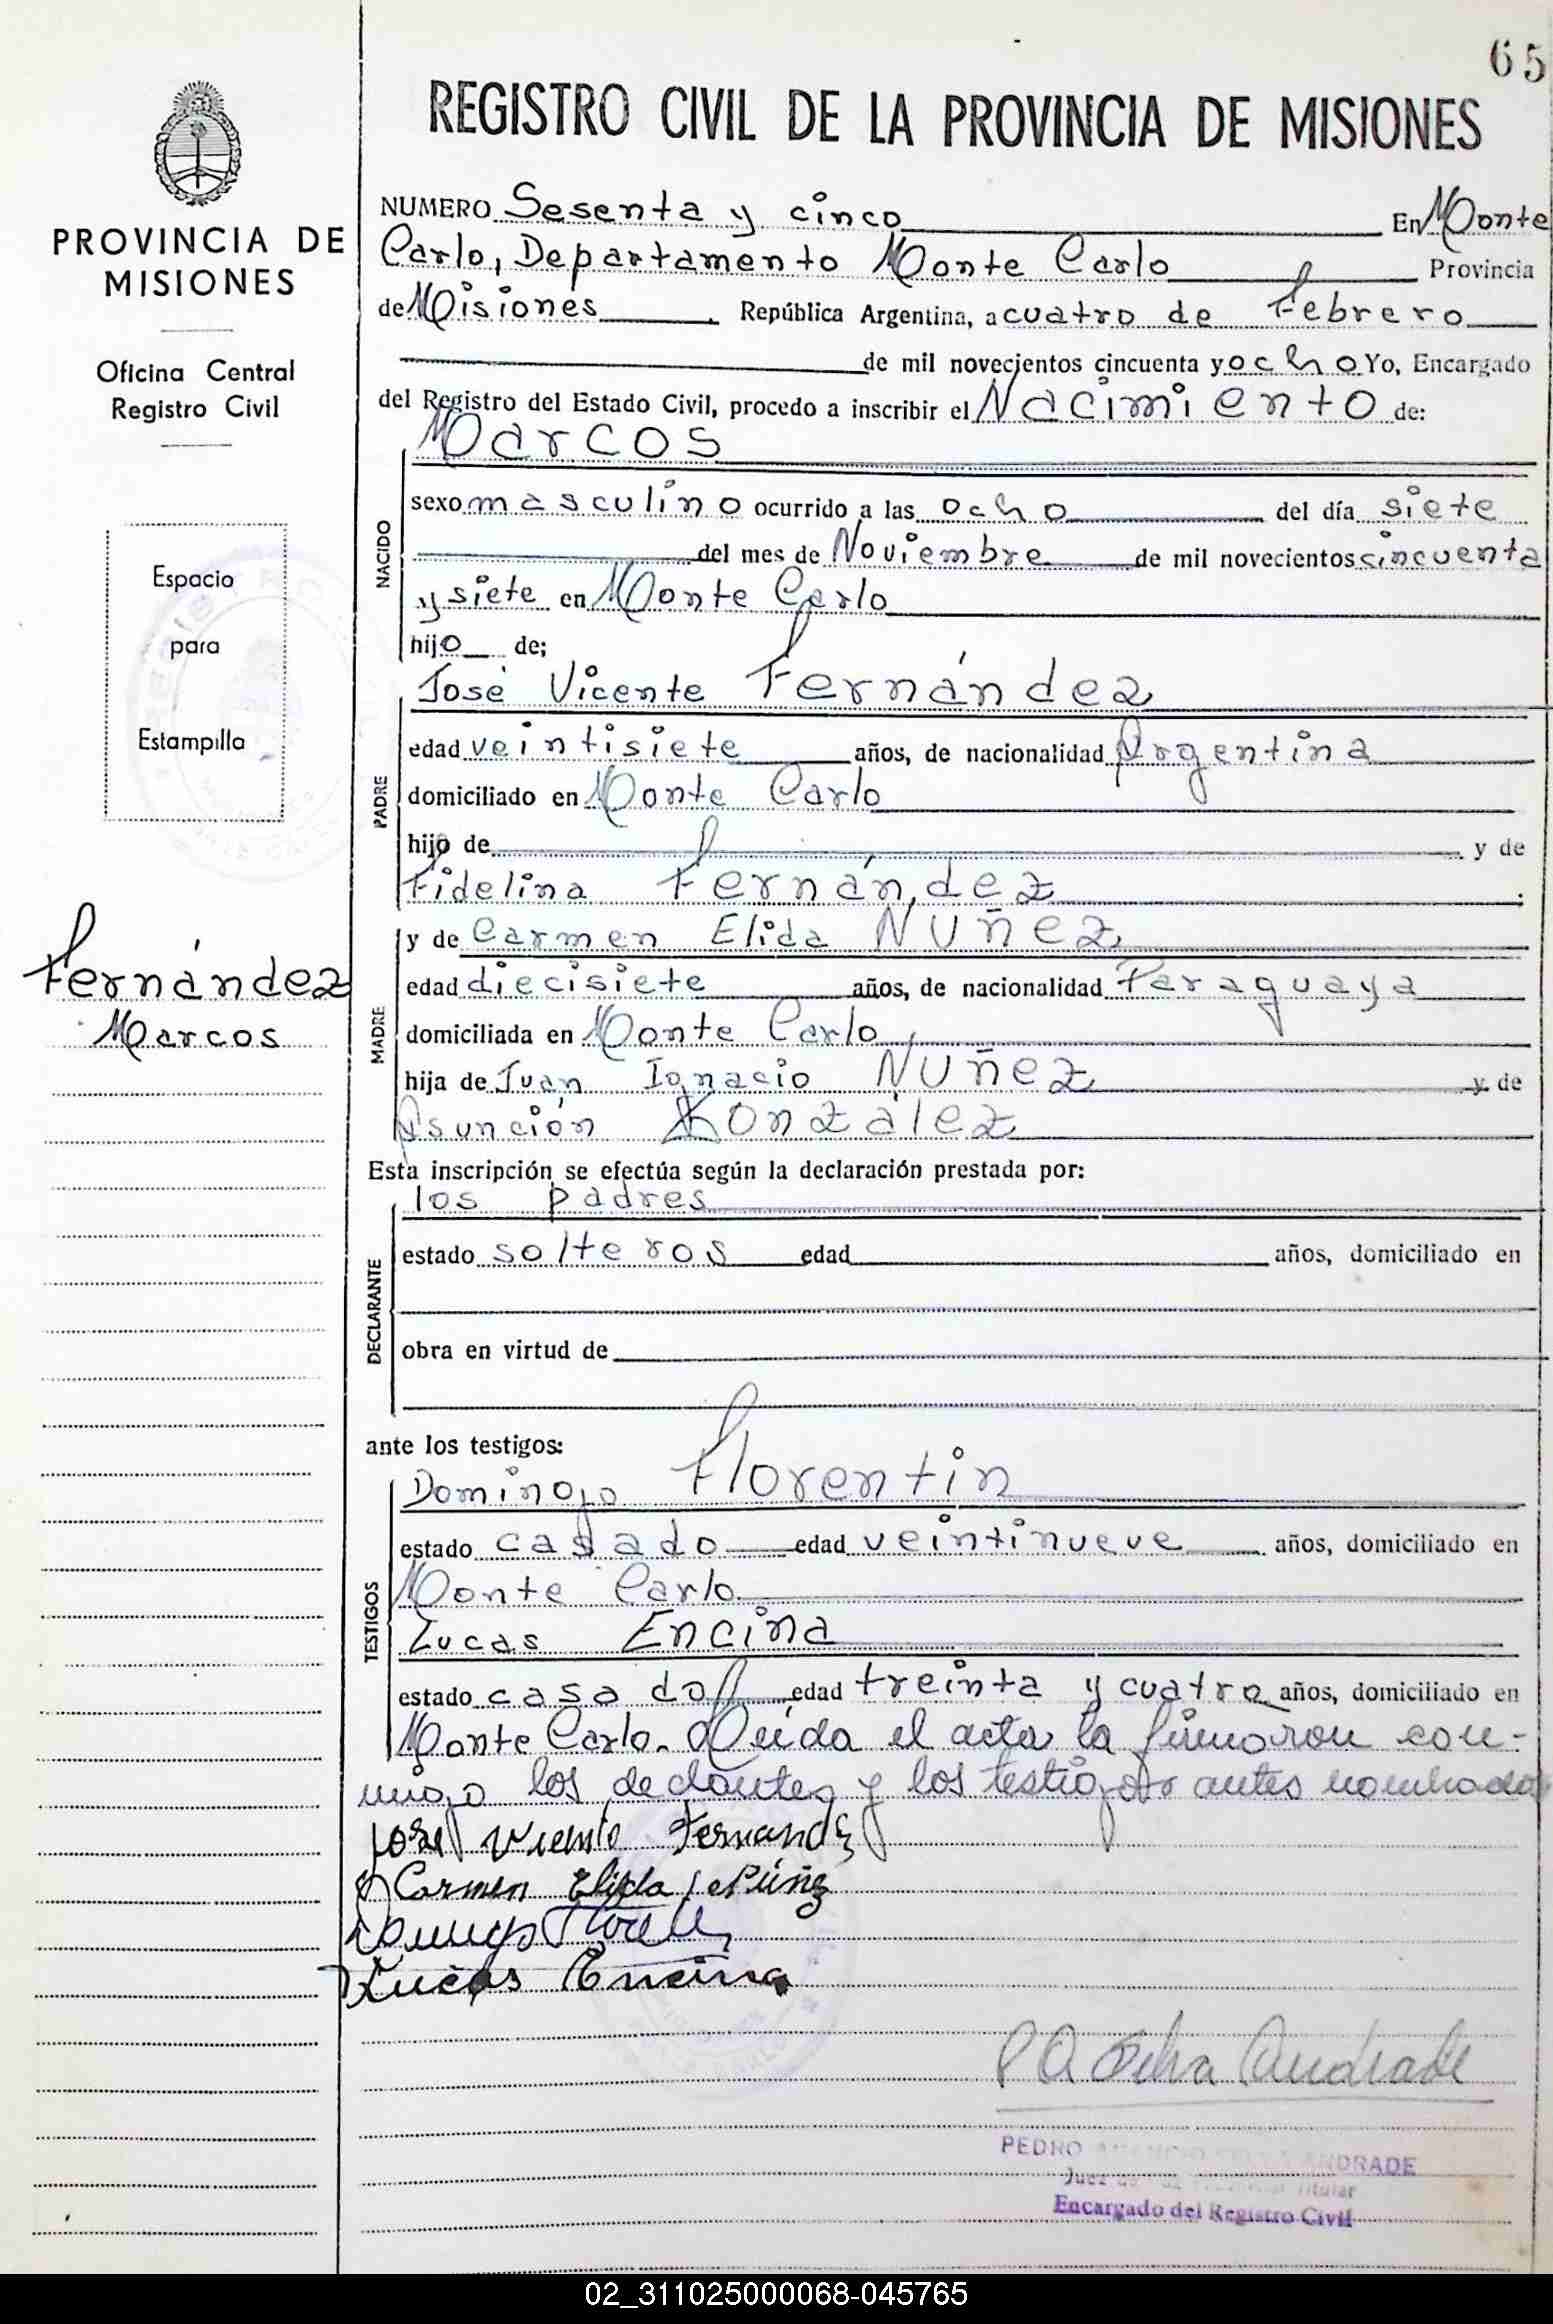 65
REGISTRO CIVIL DE LA PROVINCIA DE MISIONES
PROVINCIA DE
MISIONES
Oficina Central
Registro Civil
Espacio
para
Estampilla
Fernández
Marcos
NUMERO Sesenta y cinco En Monte
Carlo, Departamento Monte Carlo Provincia
de Misiones República Argentina, a cuatro de Febrero
de mil novecientos cincuenta y ocho Yo, Encargado
del Registro del Estado Civil, procedo a inscribir el Nacimiento de:
Marcos
NACIDO
sexo masculino ocurrido a las ocho del día siete
del mes de Noviembre de mil novecientos cincuenta
y siete en Monte Carlo
hijo de;
José Vicente Fernández
PADRE
edad veintisiete años, de nacionalidad Argentina
domiciliado en Monte Carlo
hijo de y de
Fidelina Fernández
MADRE
y de Carmen Elida NUÑEZ
edad diecisiete años, de nacionalidad Paraguaya
domiciliada en Monte Carlo
hija de Juan Ignacio NUÑEZ y de
Asunción González
Esta inscripción se efectúa según la declaración prestada por:
los padres
DECLARANTE
estado solteros edad años, domiciliado en
obra en virtud de
ante los testigos:
Domingo Florentín
TESTIGOS
estado casado edad veintinueve años, domiciliado en
Monte Carlo
Lucas Encina
estado casado edad treinta y cuatro años, domiciliado en
Monte Carlo. Leída el acta la firmaron con-
migo los declantes y los testigos antes nombrados
José Vicente Fernandez
Carmen Elida Núñez
Domingo
Lucas Encina
P A Silva Andrade
PEDRO SILVA ANDRADE
Juez de Paz Titular
Encargado del Registro Civil
02_311025000068-045765